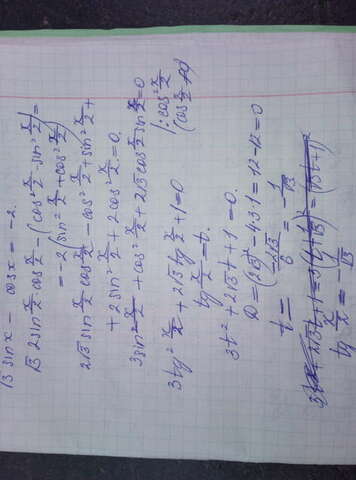 √3 sin x − cos x = −2.
√3 2sin x/2 cos x/2 − (cos² x/2 − sin² x/2) =
= −2 (sin² x/2 + cos² x/2)
2√3 sin x/2 cos x/2 − cos² x/2 + sin² x/2 +
+ 2sin² x/2 + 2cos² x/2 = 0.
3sin² x/2 + cos² x/2 + 2√3 cos x/2 sin x/2 = 0 | : cos² x/2
(cos x/2 ≠ 0)
3tg² x/2 + 2√3 tg x/2 + 1 = 0
tg x/2 = t.
3t² + 2√3 t + 1 = 0.
D = (2√3)² − 4·3·1 = 12 − 12 = 0
t = −2√3/6 = −1/√3
tg x/2 = −1/√3